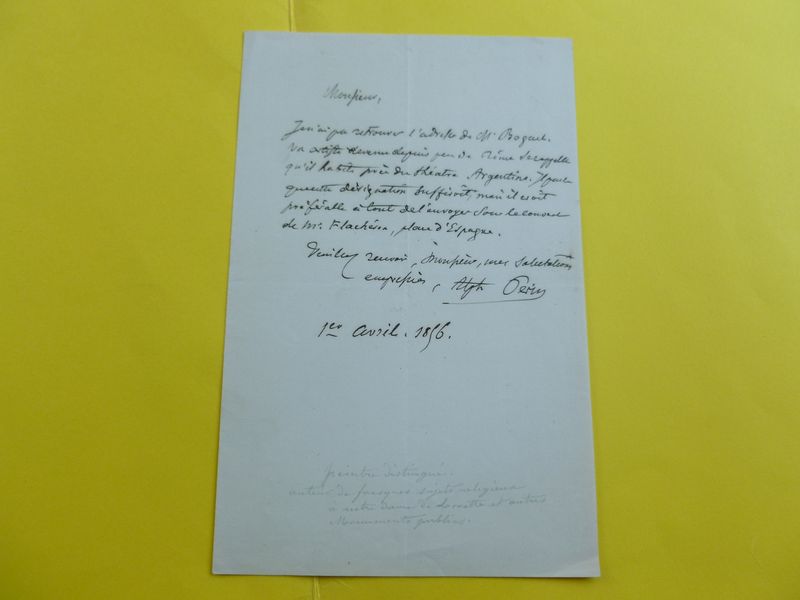 Monsieur,
Je n'ai pu retrouver l'adresse de Mr Boguet.
un artiste revenu depuis peu de Rome se rappelle
qu'il habite près du théatre Argentina.
désignation suffiroit, mais il seroit
préférable à tout de l'envoyer sous le couvert
de Mr. Flachéron, place d'Espagne.
Veuillez recevoir, Monsieur, mes salutations
empressées, Alph Perin
1er avril. 1856.
peintre distingué.
auteur de fresques sujets religieux
à notre dame de Lorette et autres
Monuments publics.